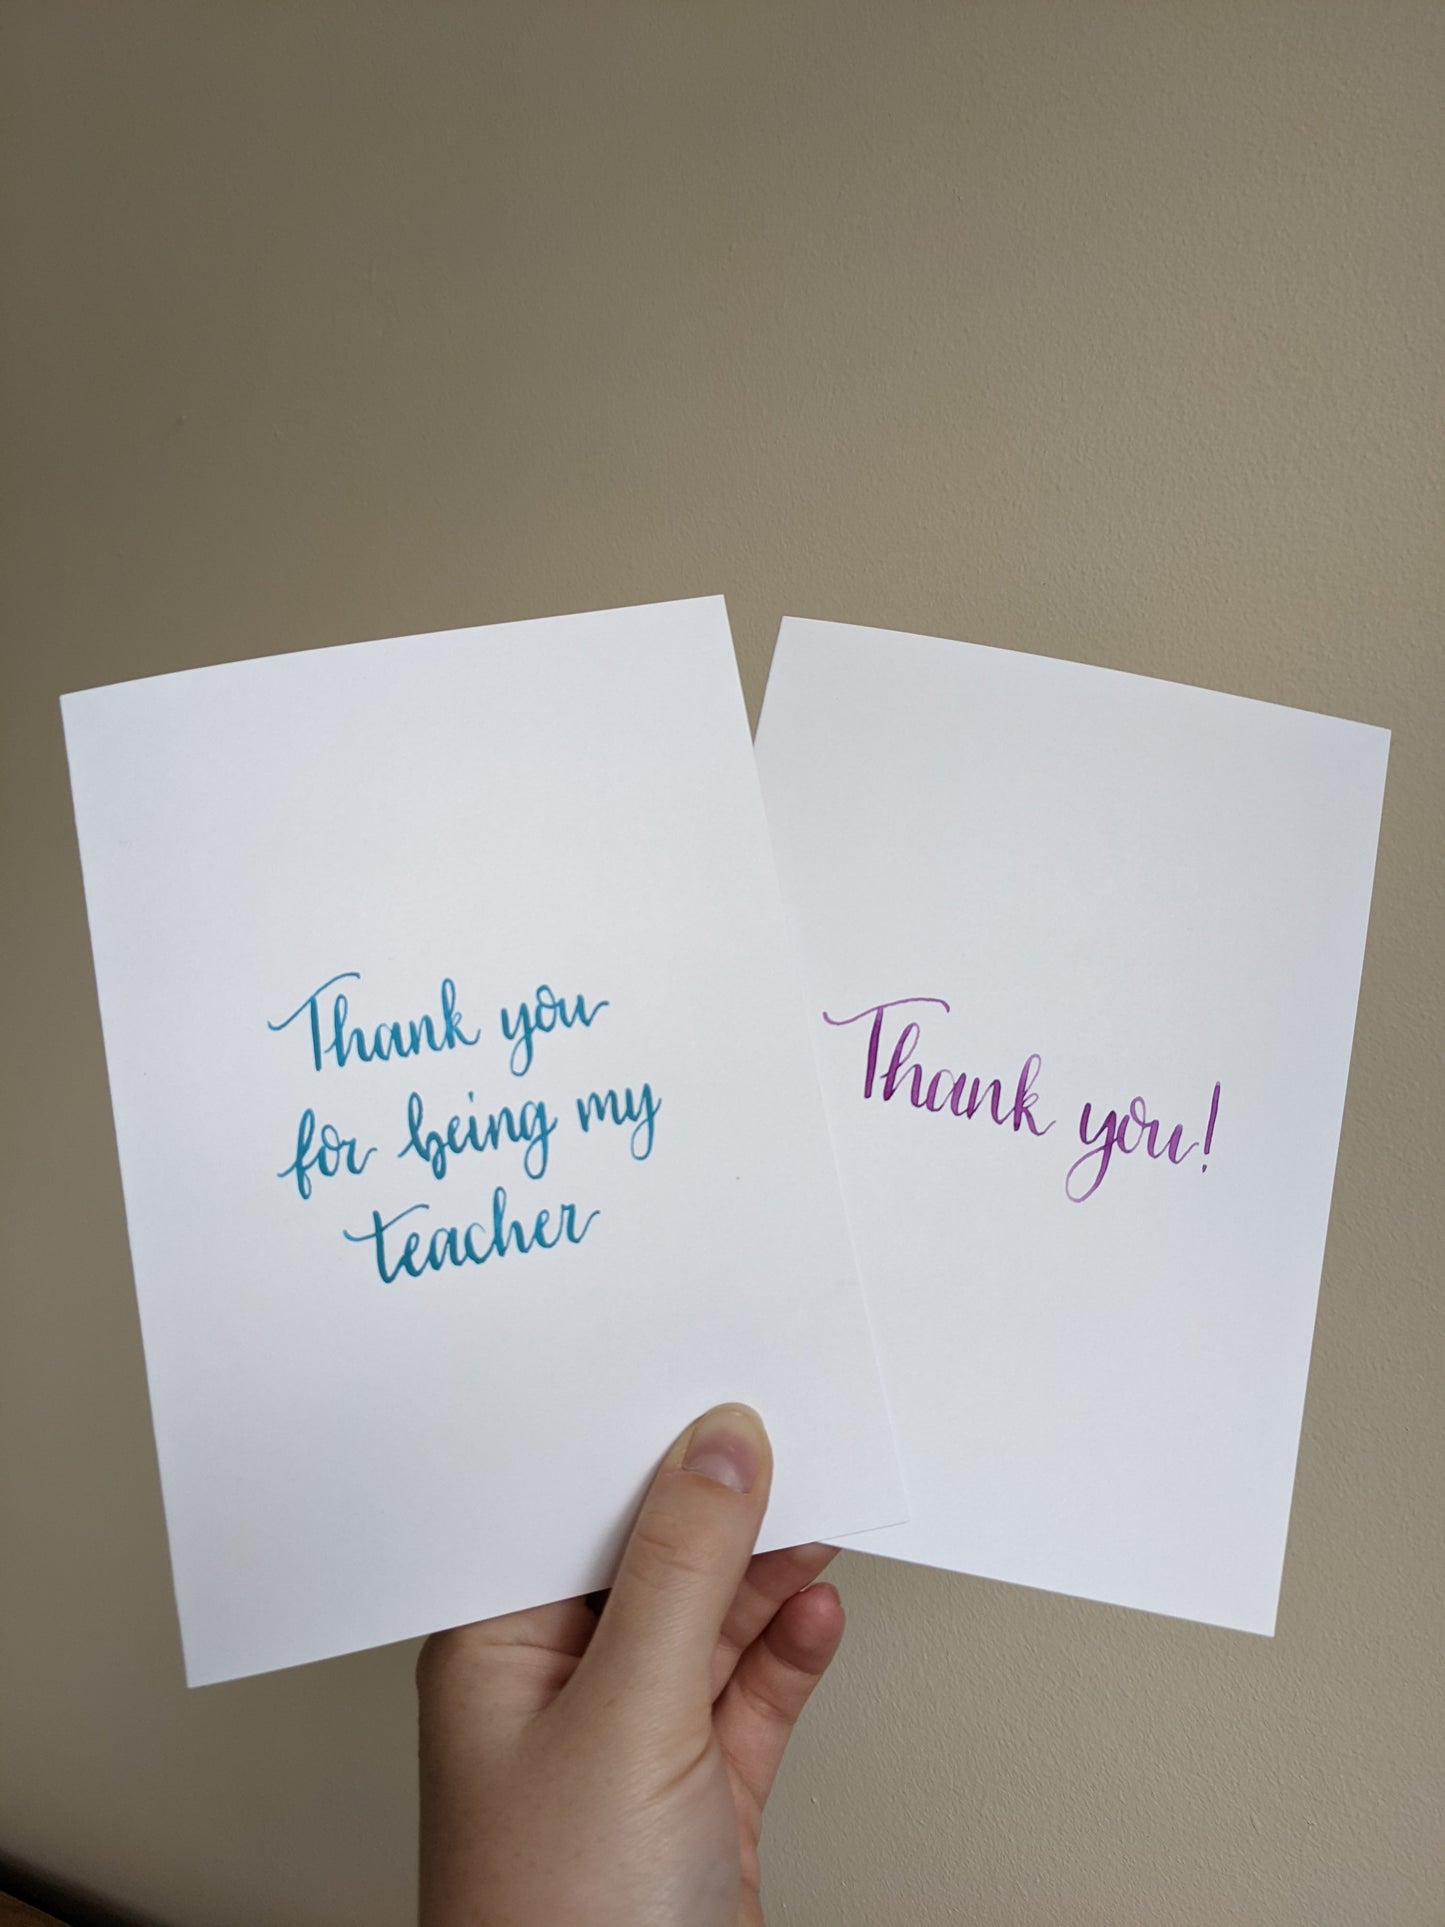 Thank you
for being my
teacher
Thank you!